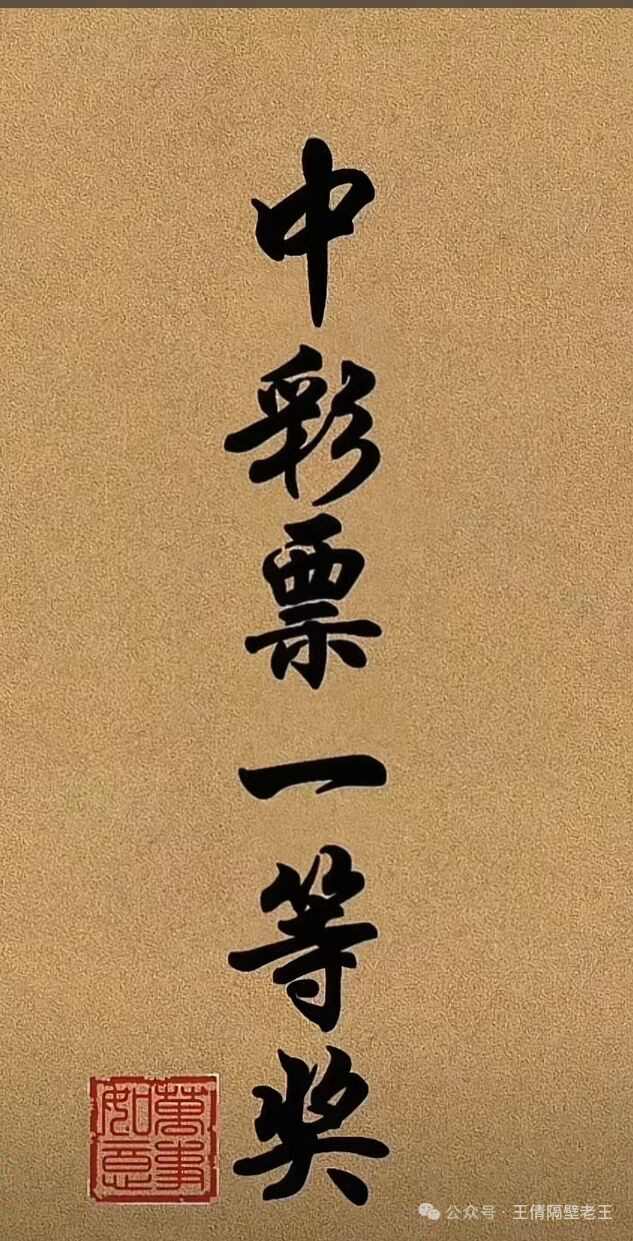 中彩票一等奖
萬事如意
公众号 · 王倩隔壁老王